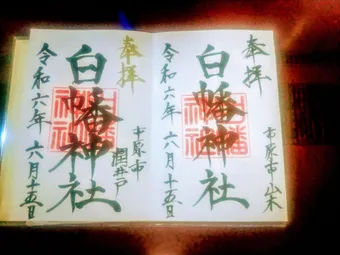 奉拝
市原市山木
白幡神社
令和六年六月十五日
奉拝
市原市潤井戸
白幡神社
令和六年六月十五日